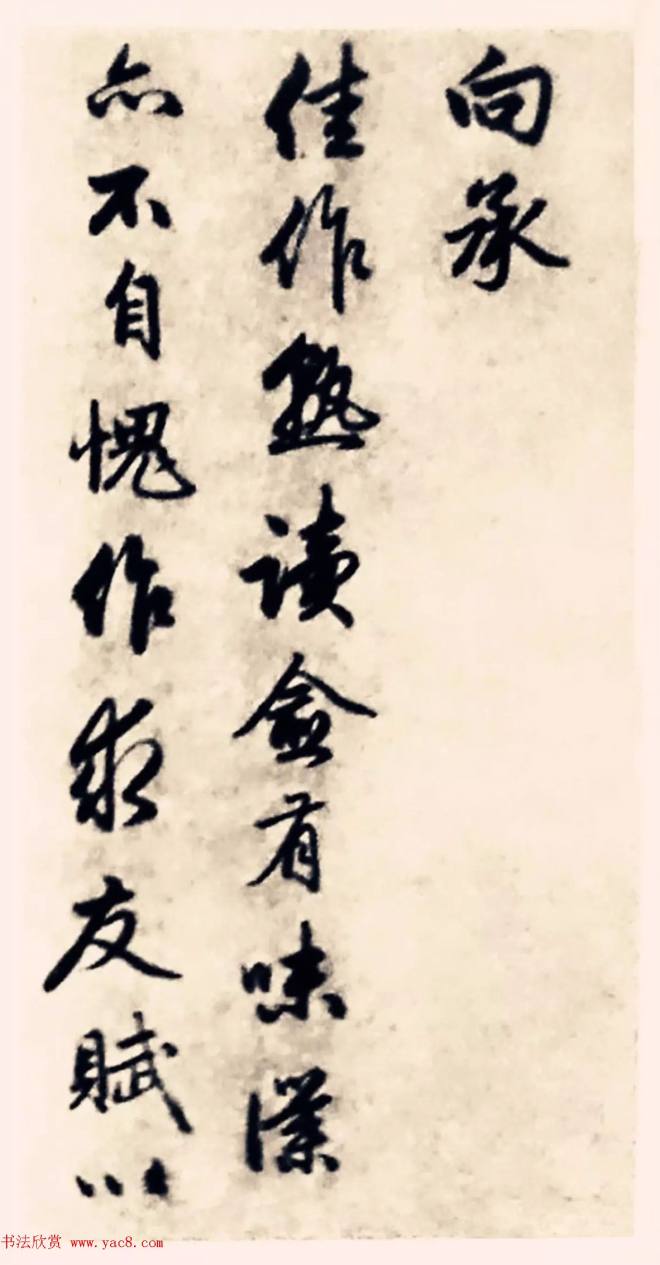 向承
佳作熟讀有味僕
亦不自愧作求友賦以
书法欣赏 www.yac8.com